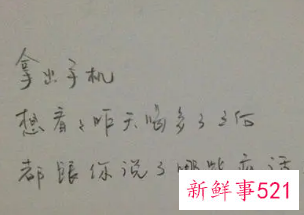 拿出手机
想看々昨天喝多了之后
都跟你说了哪些话
新鲜事521